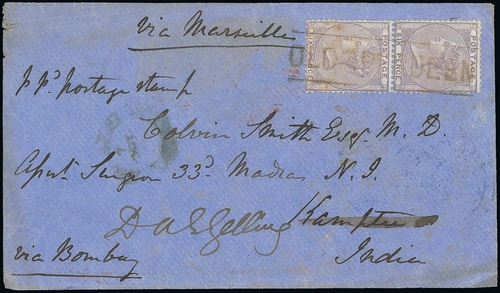 via Marseille
POSTAGE
SIX PENCE
POSTAGE
p pd postage stamp
Colvin Smith Esqr. M. D.
Asst. Surgeon 33d Madras N. I.
Kamptee
India
via Bombay